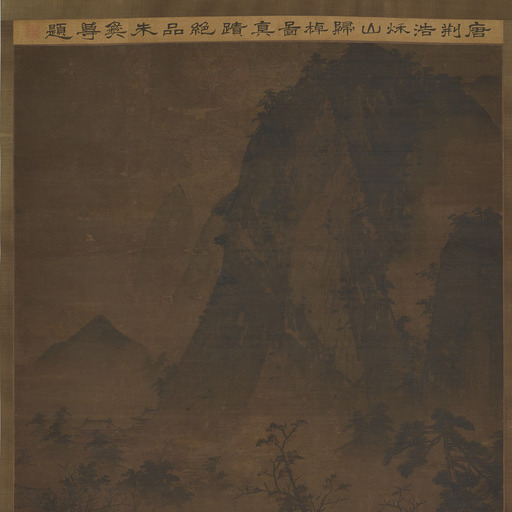 唐荆浩秌山歸棹啚真蹟絕品朱彝尊題